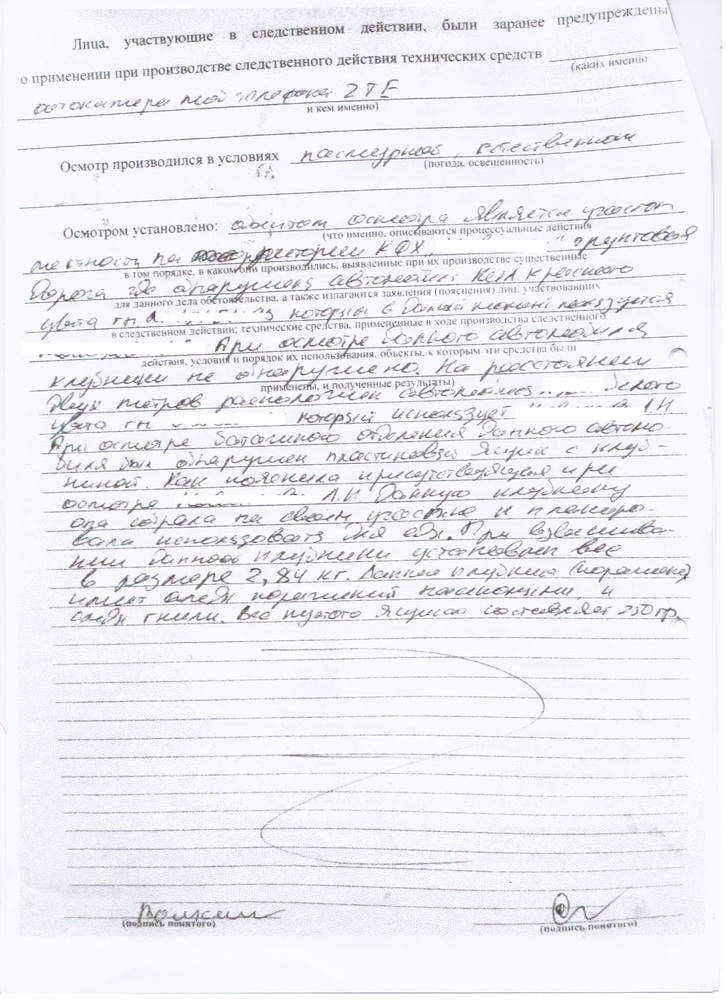 Лица, участвующие в следственном действии, были заранее предупреждены
о применении при производстве следственного действия технических средств
(каких именно
фотокамера телефона ZTE
и кем именно)
Осмотр производился в условиях пасмурной, естественном
(погода, освещенность)
Осмотром установлено: объектом осмотра является участок
(что именно, описываются процессуальные действия
местности на территории КФХ " грунтовая
в том порядке, в каком они производились, выявленные при их производстве существенные
дорога где обнаружен автомобиль красного
для данного дела обстоятельства, а также излагаются заявления (пояснения) лиц, участвовавших
цвета гн которым в данный момент пользуется
в следственном действии; технические средства, примененные в ходе производства следственного
При осмотре данного автомобиля
действия, условия и порядок их использования, объекты, к которым эти средства были
клубники не обнаружено. На расстоянии
применены, и полученные результаты)
двух метров расположен автомобиль белого
цвета гн который использует Л.И
При осмотре багажного отделения данного автомо-
биля был обнаружен пластиковый ящик с клуб-
никой. Как пояснила присутствующая при
осмотре Л.И. данную клубнику
она собрала на своем участке и планиро-
вала использовать для еды. При взвешива-
нии данной клубники установлен вес
в размере 2,84 кг. Данная клубника
имеет следы поражений насекомыми и
следы гнили. Вес пустого ящика составляет 350 гр.
(подпись понятого)
(подпись понятого)